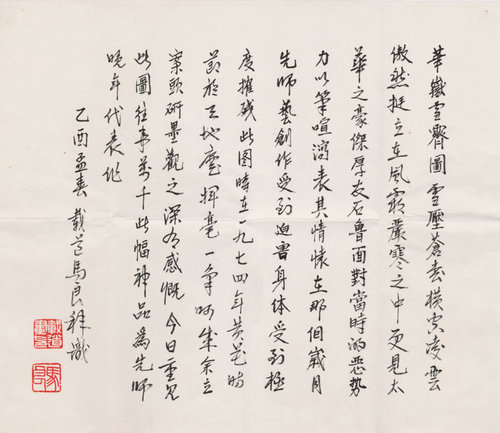 華嶽雪霽圖雪壓蒼橫空凌雲
傲然挺立在風霜嚴寒之中更見太
華之豪傑厚友石魯面對當時的惡勢
力以筆喧瀉表其情懷在那個歲月
先師藝創作受到迫害身体受到極
度摧殘此图時在一九七四年黄時
節於工地揮毫一筆呵成余立
案頭研墨觀之深有感慨今日重見
此圖往事萬千此幅神品爲先師
晚年代表作
乙酉孟春載道馬良釋識